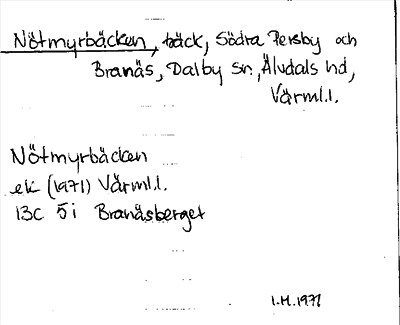 Nötmyrbäcken, bäck, Södra Persby och
Branäs, Dalby sn, Älvdals hd,
Värml.l.
Nötmyrbäcken
ek (1971) Värml.l.
13C 5i Branäsberget
I.H. 1971